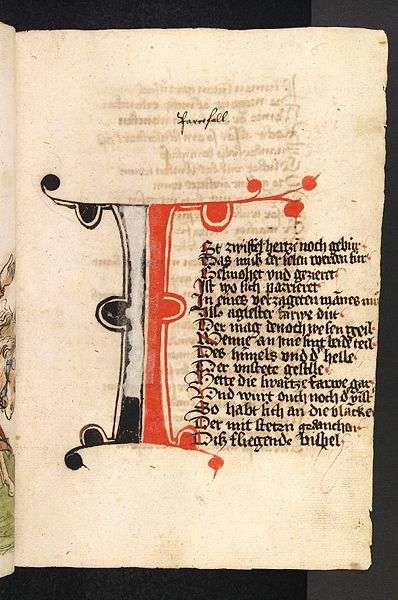 Parcifall
I
St zwiffel hertze noch gebur
Das muß der selen werden sur
Gesmohet vnd gezieret
Ist wo sich parrieret
In eines verzageten mannes mut
Als agelster farwe dut
Der mag denoch wesen geil
Wenne an yme sint beide teil
Des himels vnd d helle
Der vnstete geselle
Hette die swartze farwe gar
Vnd wurt ouch noch d
So habt sich an die blancke
Der mit steten gedancken
Diß fliegende bispel